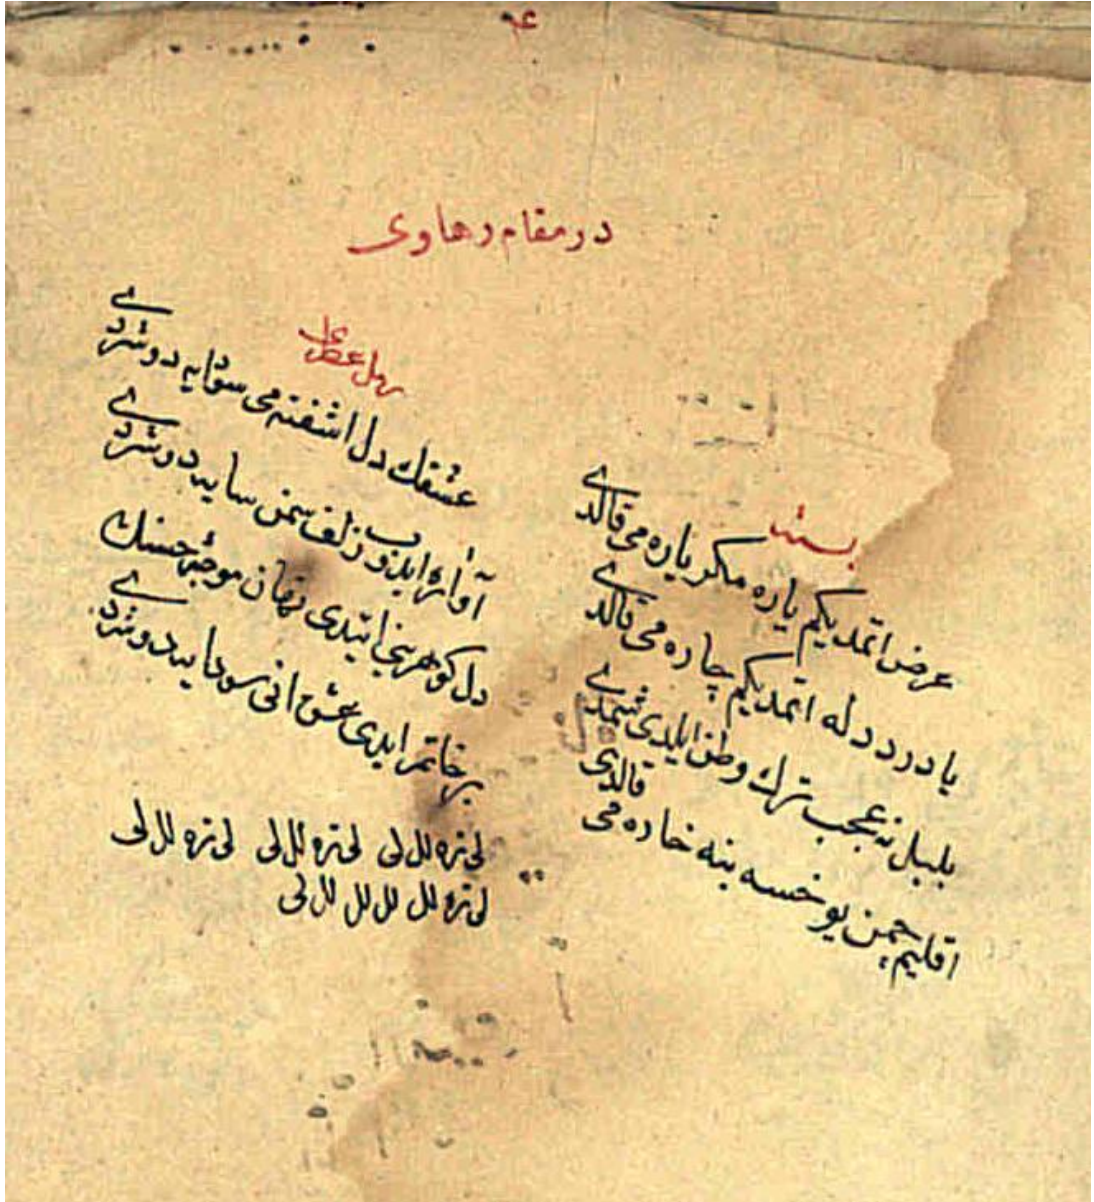 در مقام رهاوی
بسته
عرض اتمدیکم یاره مکر یاره می قالدی
یا درد دله اتمدیکم چاره می قالدی
بلبل نه عجب ترك وطن ایلدی شمدی
اقلیم چمن یوخسه ینه خاره می قالدی
عشقك دل اشفته می سودایه دوشردی
آواره ایدوب زلف سمن سایه دوشردی
دل کوهرینی ایتدی نهان موجۀ حسنك
بر خاتم ایدی عشق انی سودایه دوشردی
لی تره لل لی لی تره لل لی لی تره لل لی
لی تره لل لل لل لل لی